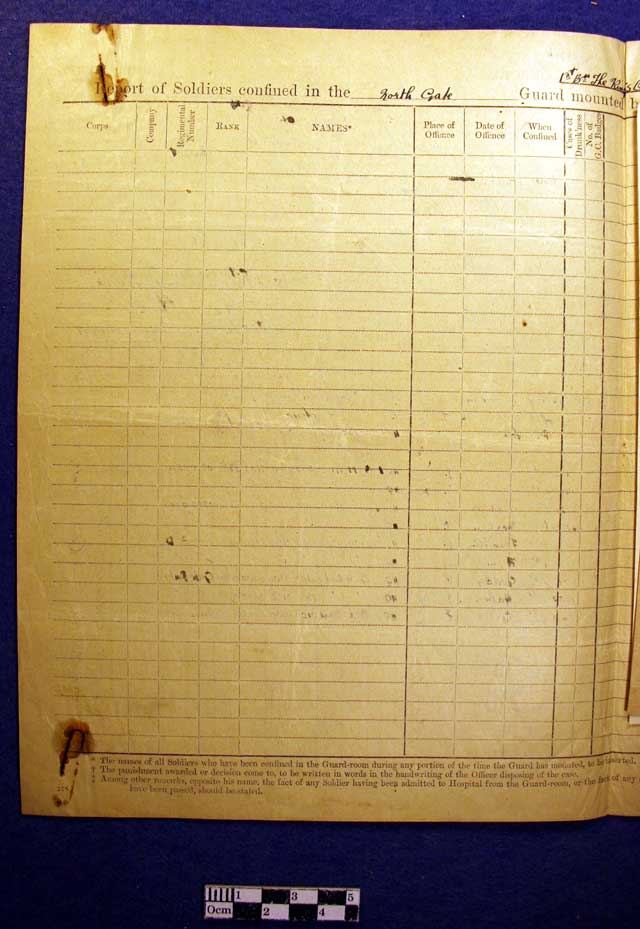 1st Bn The King's
Report of Soldiers confined in the North Gate Guard mounted
Corps Company Regimental Number RANK NAMES* Place of Offence Date of Offence When Confined Cases of Drunk'ness No. of G.C. Badges
* The names of all Soldiers who have been confined in the Guard-room during any portion of the time the Guard has mounted, to be inserted.
† The punishment awarded or decision come to, to be written in words in the handwriting of the Officer disposing of the case.
‡ Among other remarks, opposite his name, the fact of any Soldier having been admitted to Hospital from the Guard-room, or the fact of any
have been passed, should be stated.
0cm 1 2 3 4 5